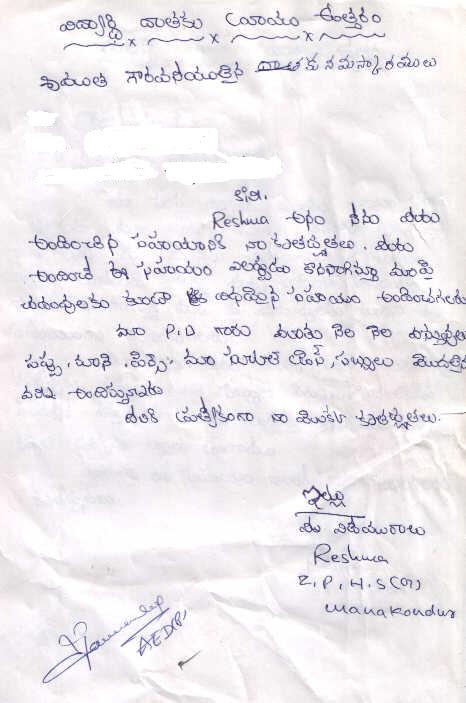 విద్యార్థి దాతకు వ్రాయు ఉత్తరం
శ్రీయుత గౌరవనీయులైన దాతకు నమస్కారములు
Reshma అను నేను మీరు
అందించిన సహాయానికి నా కృతజ్ఞతలు. మీరు
అందించే ఈ సహాయం ఎల్లప్పుడు కొనసాగిస్తూ మాపై
చదువులకు కూడా ఈ విధమైన సహాయం అందించగలరు
మా P.D గారు మాకు నెల నెల వస్తువులు
పప్పు, నూనె, సబ్బులు మొదలైన
అందిస్తున్నారు
ప్రత్యేకంగా నా యొక్క కృతజ్ఞతలు.
ఇట్లు
మీ విధేయురాలు
Reshma
Z.P.H.S(G)
Manakondur
AEDP